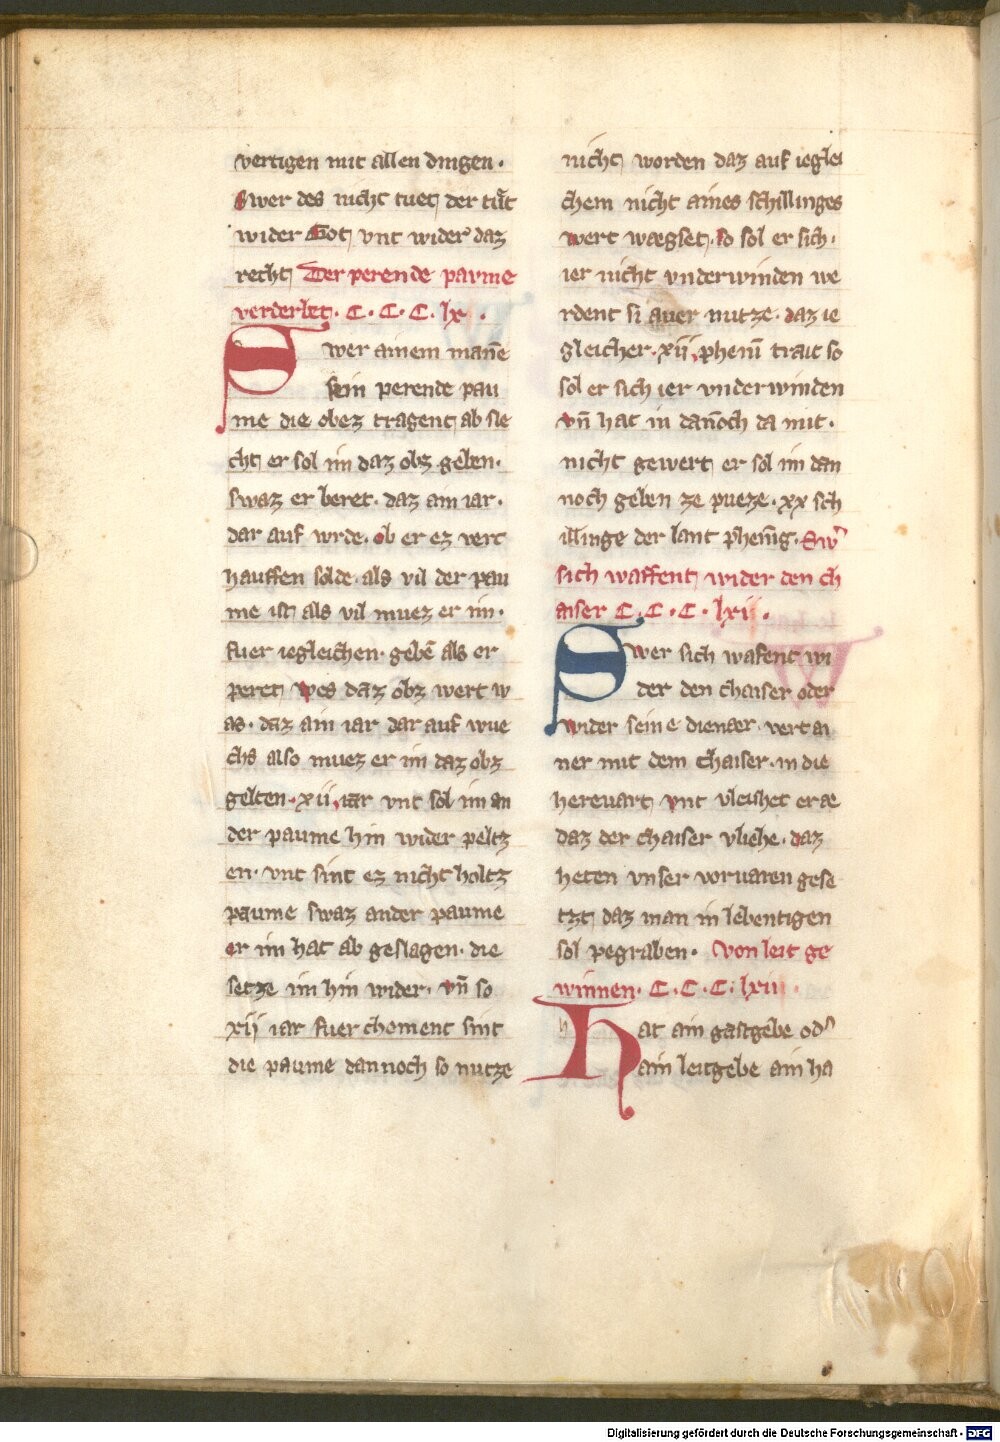 vertigen mit allen dingen·
Swer des nicht tuet, der tu͛t
wider Got, vnt wider daz
recht, Der perende paume
verderbet· C· C· C· lx ·
Swer ainem man̄e
sein perende pau
me die obez tragent, ab sle
cht, er sol im daz obz gelten·
swaz er beret· daz ain iar·
dar auf wrde· ob er ez verc
hauffen solde· als vil der pau
me ist, als vil muez er im·
fuer iegleichen· gebē als er
peret, wes daz obz wert w
as· daz ain iar dar auf wue
chs also muez er im daz obz
gelten· xii iar vnt sol im an
der paume hin wider peltz
en· vnt sint ez nicht holtz
paume swaz ander paume
er im hat ab geslagen· die
setze im hin wider· vn̄ so
xij iar fuer choment sint
die paume dannoch so nutze
nicht, worden daz auf ieglei
chem nicht aines schillinges
wert wægset· so sol er sich·
ier nicht vnderwinden we
rdent si auer nutze· daz ie
gleicher· xij phenn̄ trait so
sol er sich ier vnderwinden
vn̄ hat in dan̄och da mit·
nicht gewert, er sol im dan
noch geben ze pueze· xx sch
illinge der lant phen̄ig· Sw͛
sich waffent, wider den ch
aiser C· C· C· lxii ·
Swer sich wafent wi
der den chaiser oder
wider seine dienær· vert ai
ner mit dem chaiser· in die
hereuart, vnt vleishet er æ
daz der chaiser vliehe· daz
heten vnser voruaren gese
tzt, daz man in lebentigen
sol pegraben· Von leit ge
winnen· C· C· C· lxiii ·
Hat ain gastgebe od͛
ain leitgebe ain ha
Digitalisierung gefördert durch die Deutsche Forschungsgemeinschaft · DFG